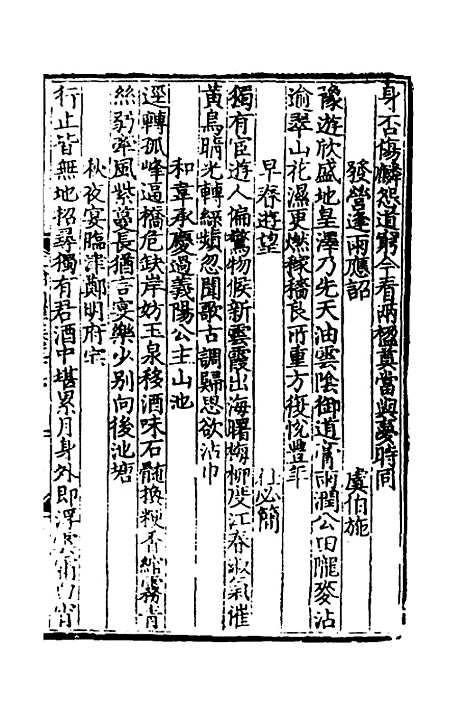 身否傷麟怨道窮今看兩楹奠當與夢時同
發營逢雨應詔　虞伯施
豫遊欣盛地皇澤乃先天油雲陰御道膏雨潤公田隴麥沾
逾翠山花濕更燃稼穡良所重方復悅豊年
早春遊望　杜必簡
獨有宦遊人偏驚物候新雲霞出海曙梅柳度江春淑氣催
黃鳥晴光轉綠蘋忽聞歌古調歸思欲沾巾
和韋承慶過義陽公主山池
逕轉孤峰逼橋危缺岸妨玉泉移酒味石髓換粳香綰霧青
絲弱牽風紫蔓長猶言宴樂少別向後池塘
秋夜宴臨津鄭明府宅
行止皆無地招尋獨有君酒中堪累月身外即浮雲